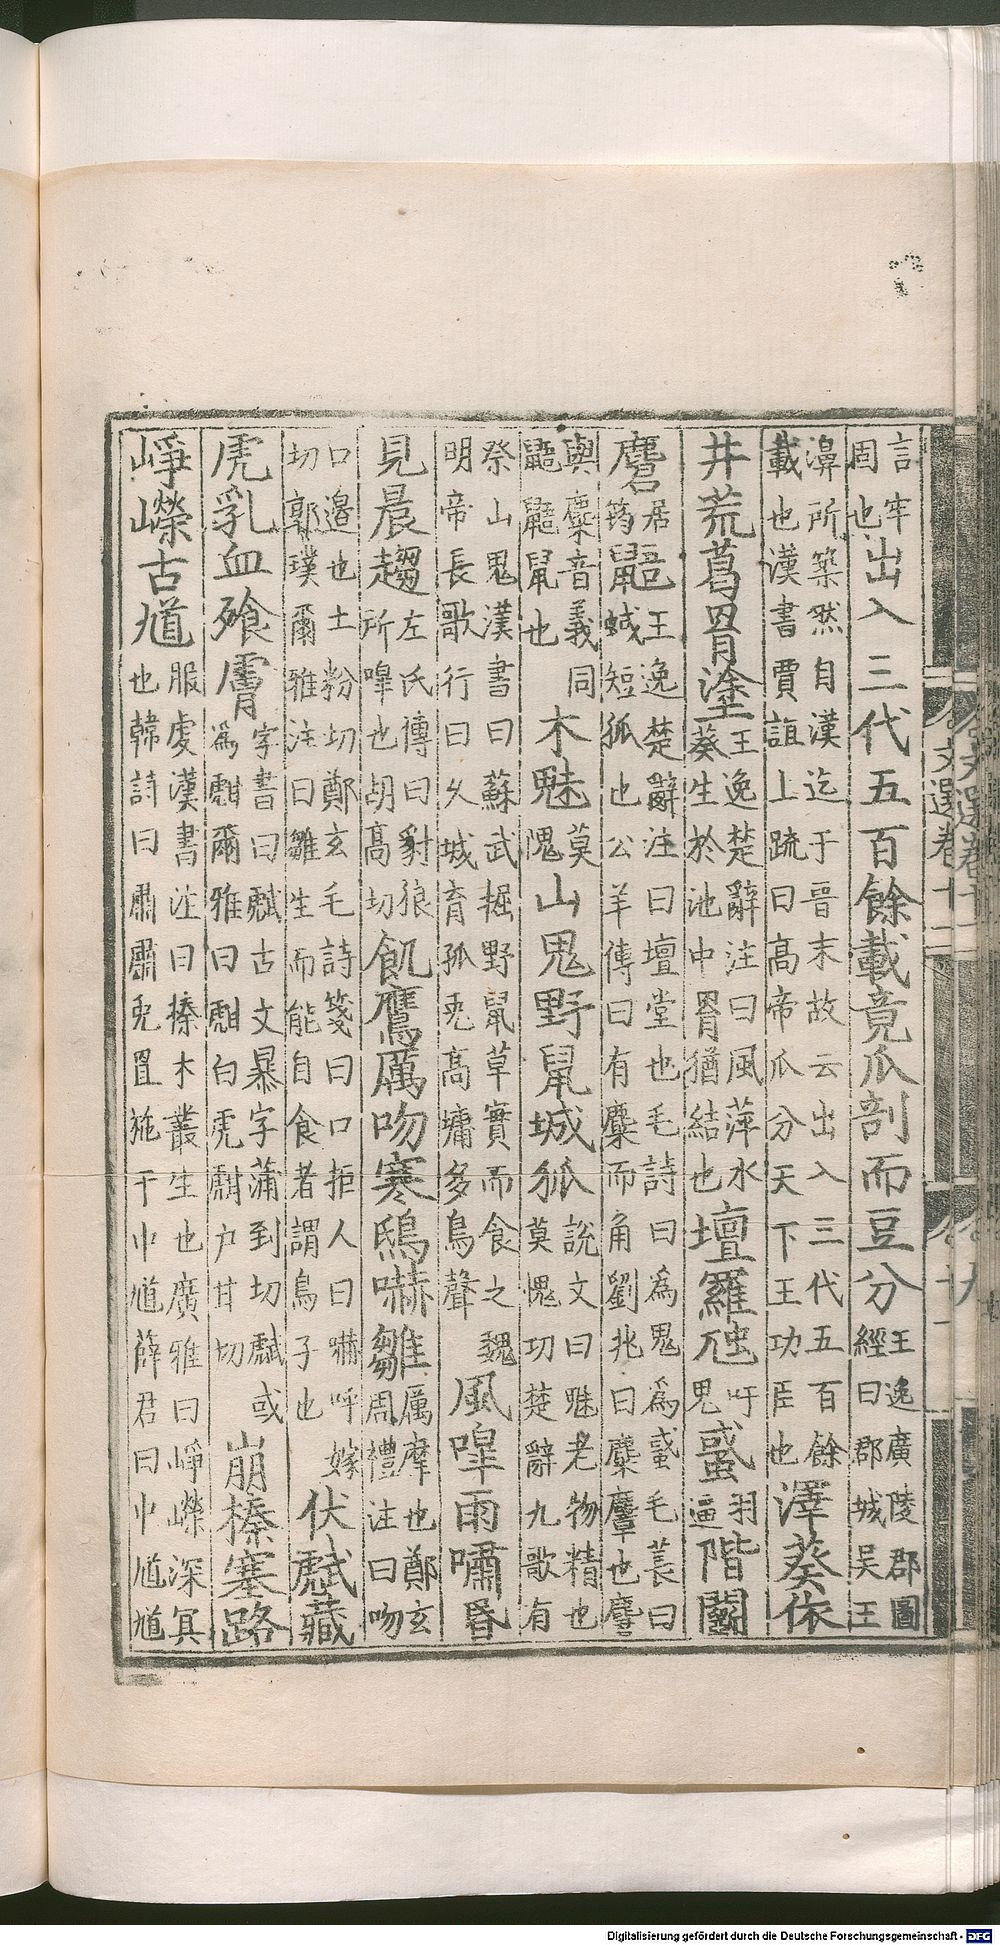 言牢固也出入三代五百餘載竟瓜剖而豆分王逸廣陵郡圖經曰郡城吳王
濞所築然自漢迄于晉末故云出入三代五百餘載也漢書賈誼上疏曰高帝瓜分天下王功臣也澤葵依
井荒葛罥塗王逸楚辭注曰風萍水葵生於池中罥猶結也壇羅虺吁鬼蜮羽逼階鬭
麏居筠鼯王逸楚辭注曰壇堂也毛詩曰為鬼為蜮毛萇曰蜮短狐也公羊傳曰有麋而角劉兆曰麋麞也麏
與麋音義同鼯鼯鼠也木魅莫愧山鬼野鼠城狐說文曰魅老物精也莫愧切楚辭九歌有
祭山鬼漢書曰蘇武掘野鼠草實而食之魏明帝長歌行曰久城育狐兔高墉多鳥聲風嘷雨嘯昏
見晨趨左氏傳曰豺狼所嘷也胡高切飢鷹厲吻寒鴟嚇雛厲摩也鄭玄周禮注曰吻
口邊也土粉切鄭玄毛詩箋曰口拒人曰嚇呼嫁切郭璞爾雅注曰雛生而能自食者謂鳥子也伏虣藏
虎乳血飱膚字書曰虣古文暴字蒲到切虣或為甝爾雅曰甝白虎甝户甘切崩榛塞路
崢嶸古馗服虔漢書注曰榛木叢生也廣雅曰崢嶸深冥也韓詩曰肅肅兔罝施于中馗薛君曰中馗馗
Digitalisierung gefördert durch die Deutsche Forschungsgemeinschaft - DFG